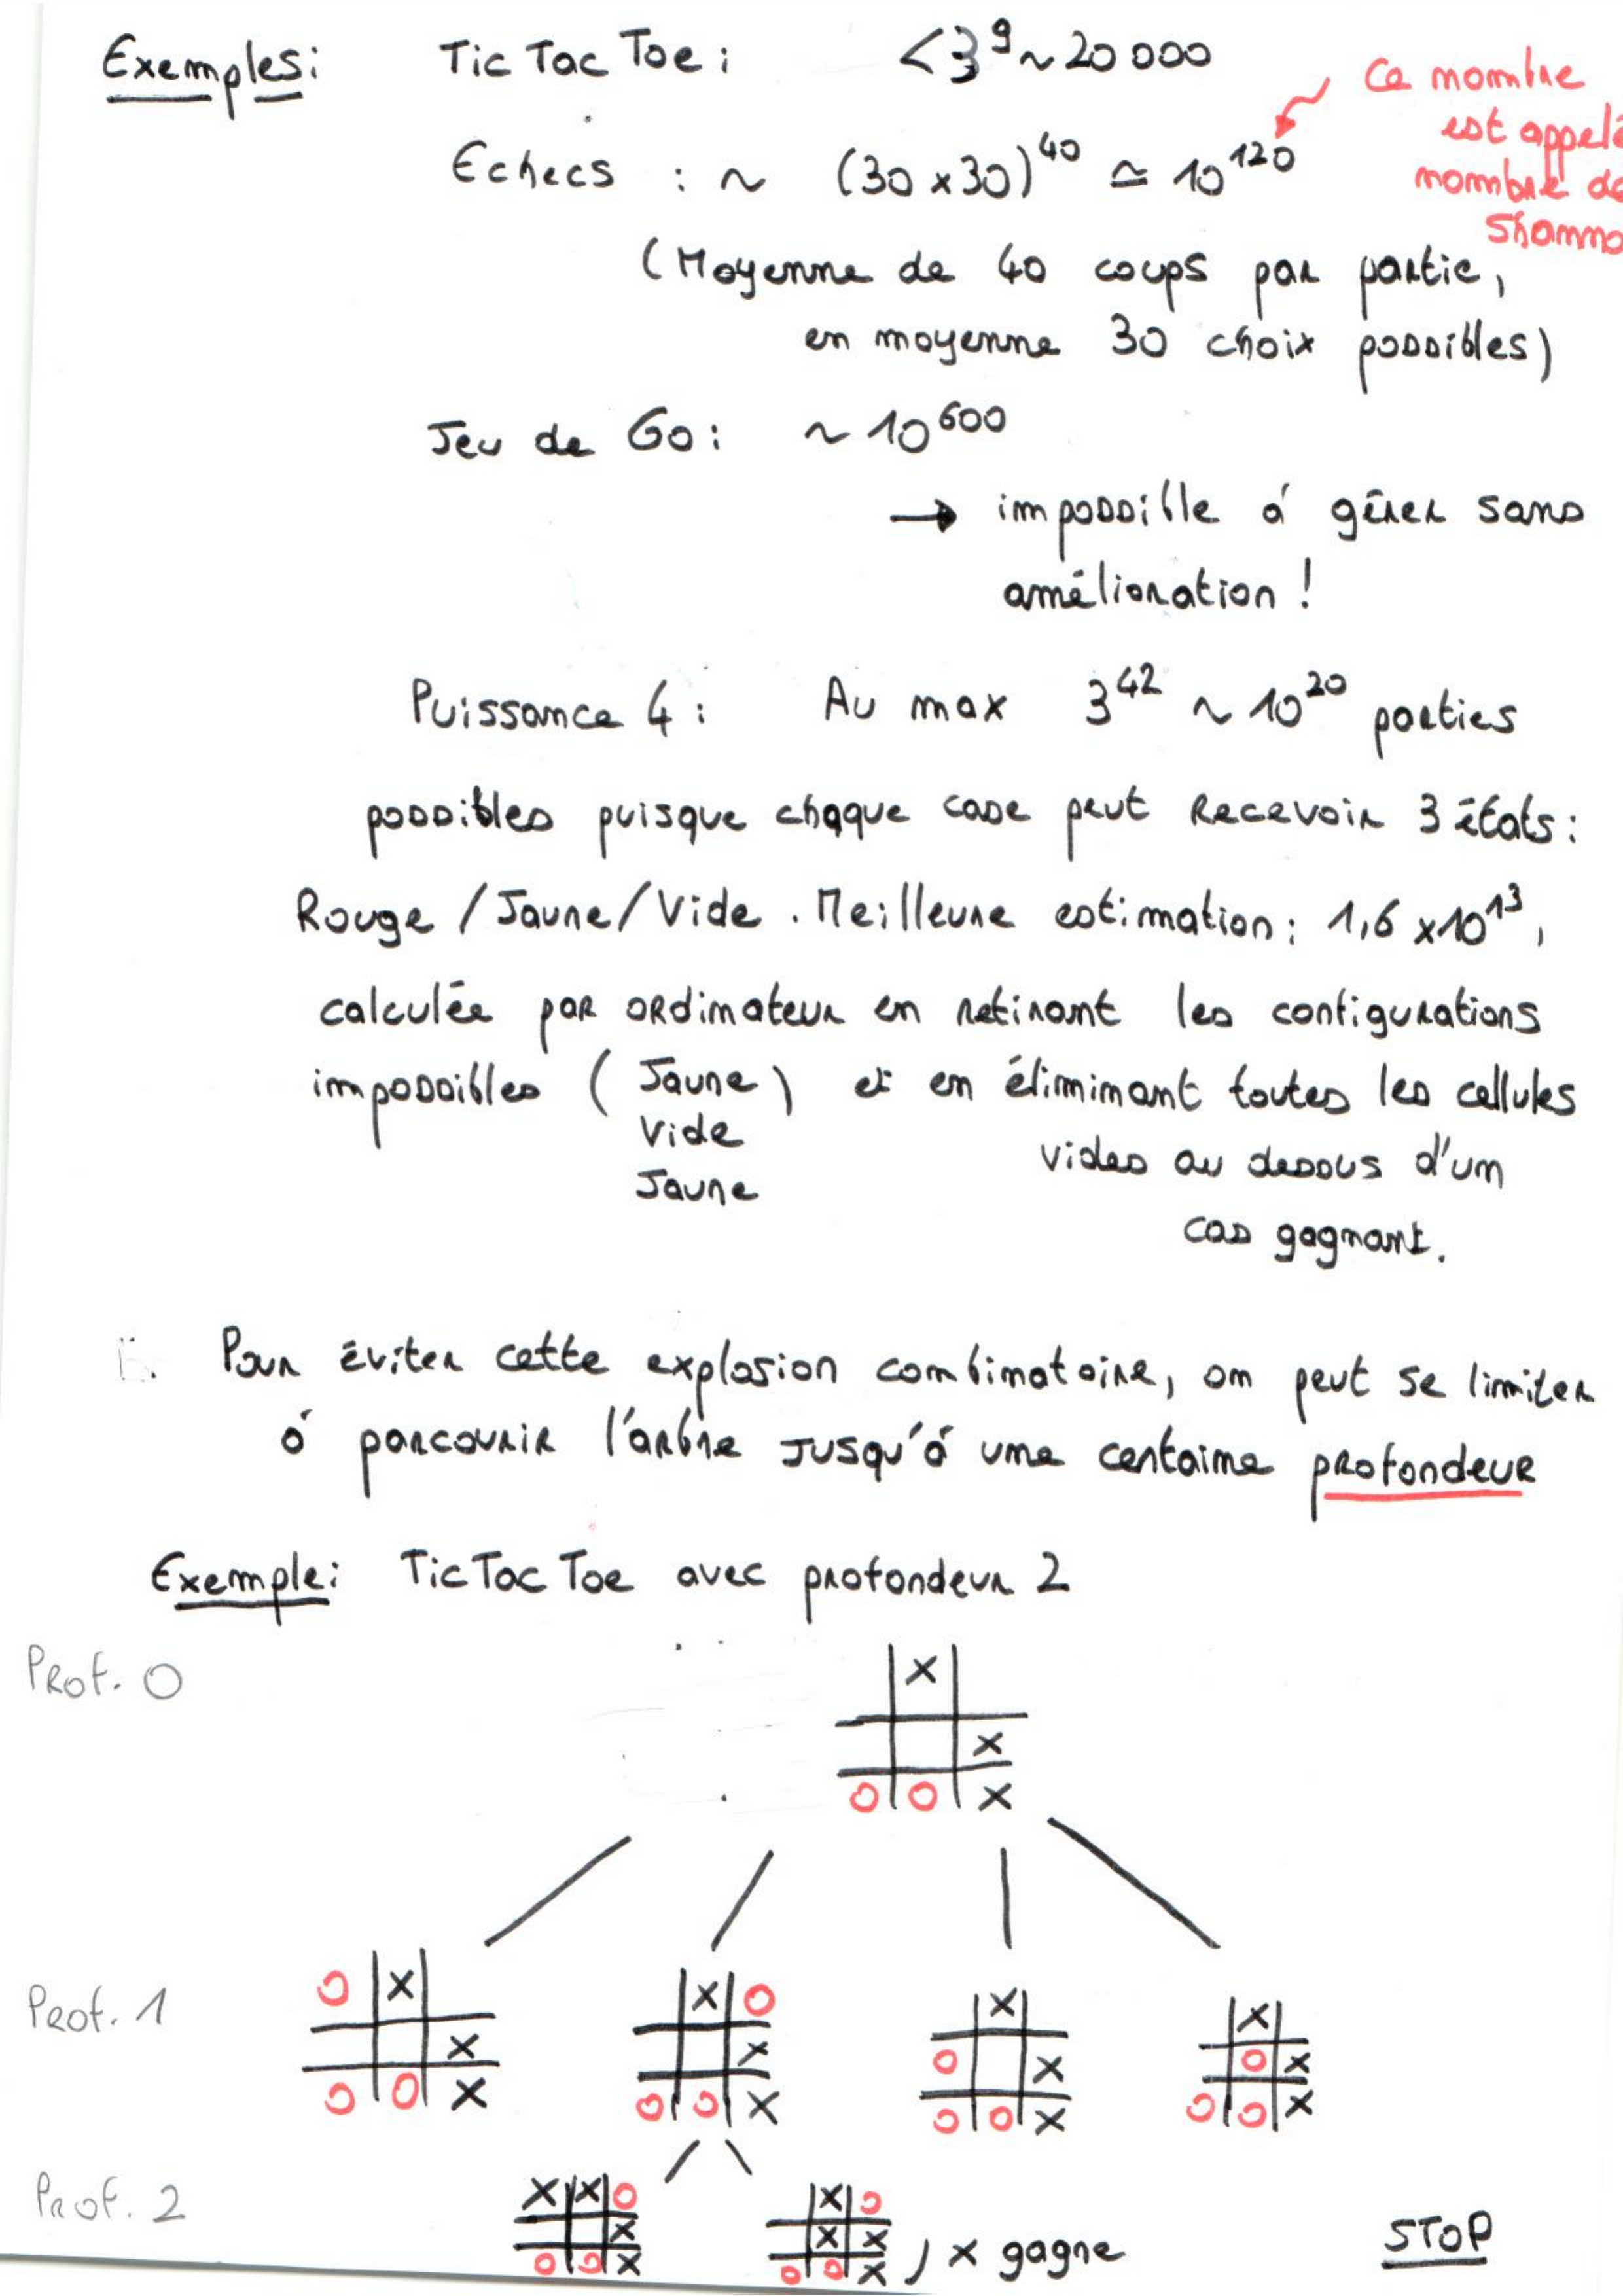 Exemples: Tic Tac Toe: < 3^9 ~ 20 000
Ce nombre
est appelé
nombre de
Echecs : ~ (30 x 30)^40 ≃ 10^120
(Moyenne de 40 coups par partie,
en moyenne 30 choix possibles)
Jeu de Go: ~ 10^600
→ impossible à gérer sans
amélioration !
Puissance 4 : Au max 3^42 ~ 10^20 parties
possibles puisque chaque case peut recevoir 3 états :
Rouge / Jaune / Vide . Meilleure estimation : 1,6 x10^13 ,
calculée par ordinateur en retirant les configurations
impossibles ( Jaune ) et en éliminant toutes les cellules
Vide
Jaune
vides au dessous d'un
cas gagnant.
Pour éviter cette explosion combinatoire, on peut se limiter
à parcourir l'arbre jusqu'à une centaine profondeur
Exemple: Tic Tac Toe avec profondeur 2
Prof. 0
X
X
O O X
Prof. 1
O X
X
O O X
X O
X
O O X
X
O X
O O X
X
O X
O O X
Prof. 2
X X O
X
O O X
X O
X X
O O X
, x gagne
STOP